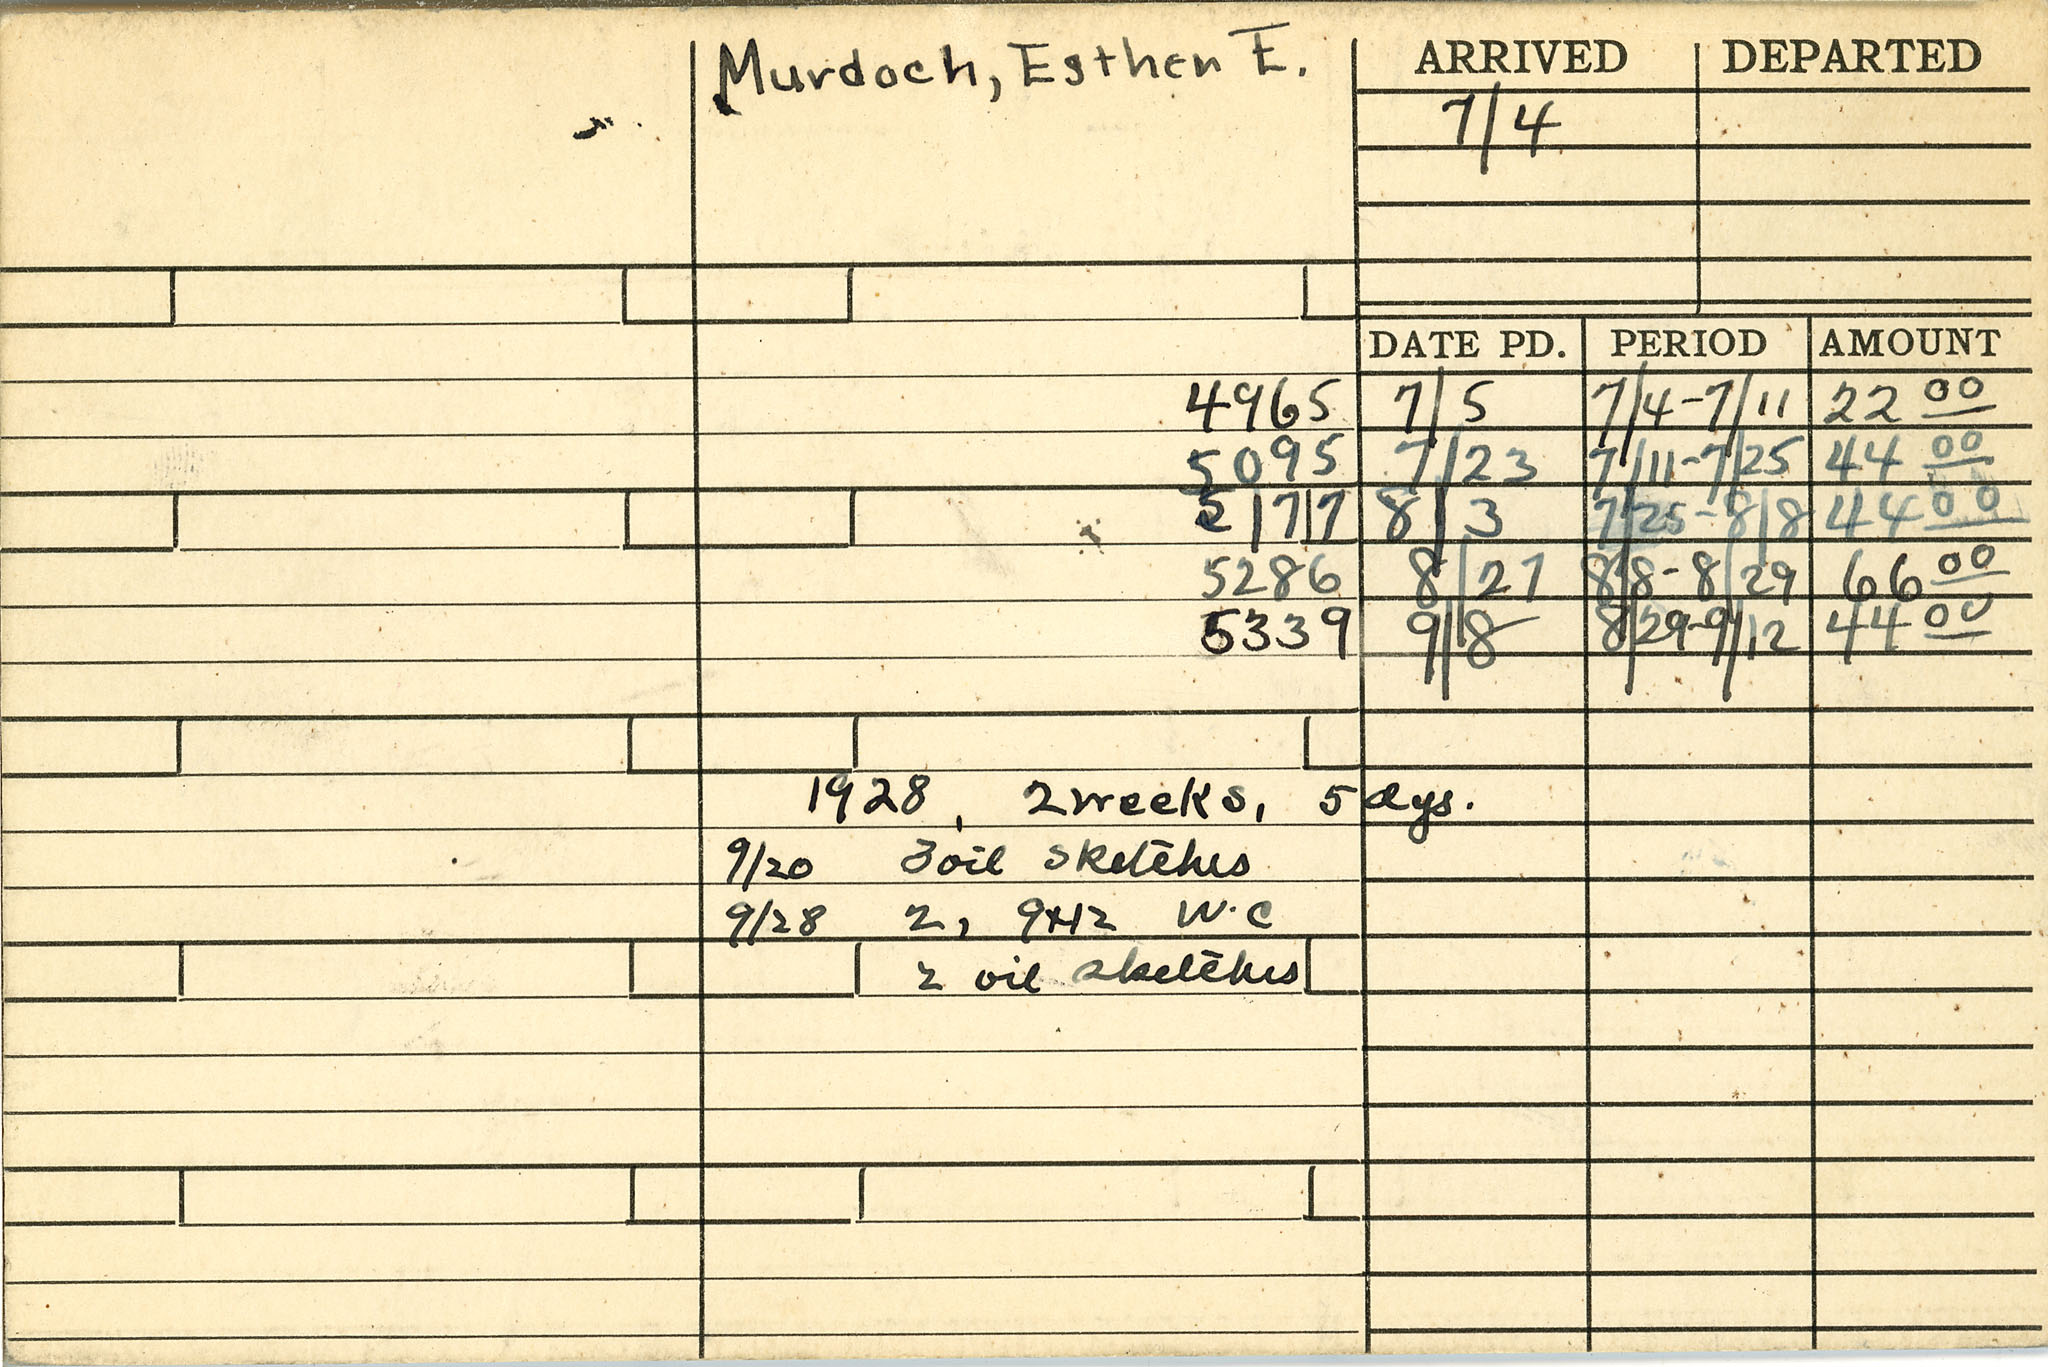 Murdoch, Esther E.
ARRIVED DEPARTED
7/4
DATE PD. PERIOD AMOUNT
4965 7/5 7/4-7/11 22 00
5095 7/23 7/11-7/25 44 00
5177 8/3 7/25-8/8 44 00
5286 8/27 8/8-8/29 66 00
5339 9/8 8/29-9/12 44 00
1928, 2 weeks, 5 dys.
9/20 3 oil sketches
9/28 2, 9x12 W.C
2 oil sketches